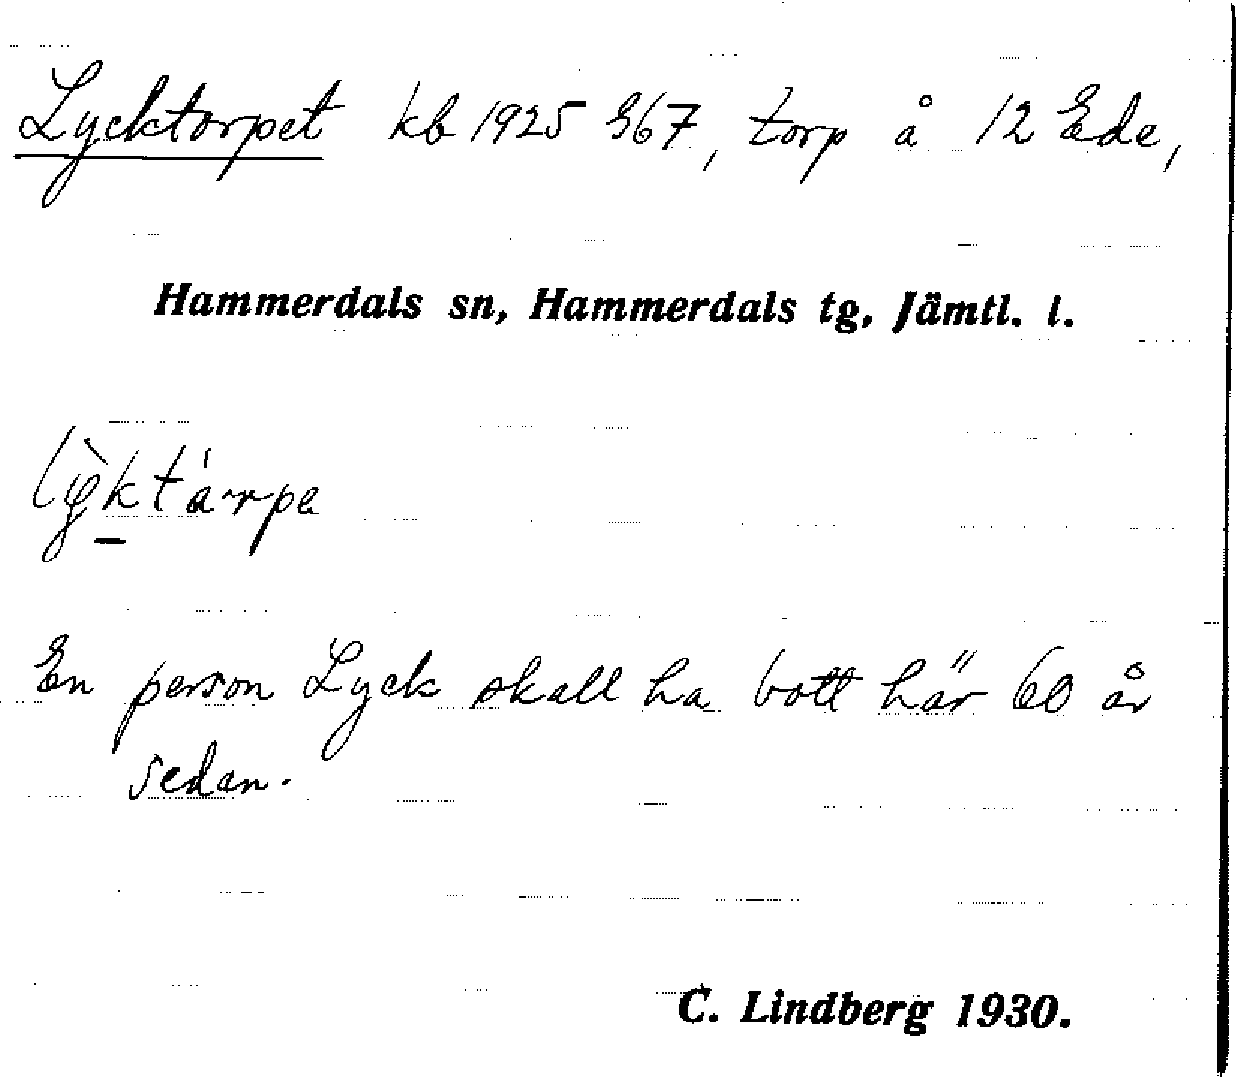 Lycktorpet kb 1925 367, torp å 12 Ede,
Hammerdals sn, Hammerdals tg, Jämtl. l.
En person Lyck skall ha bott här 60 år
sedan.
C. Lindberg 1930.